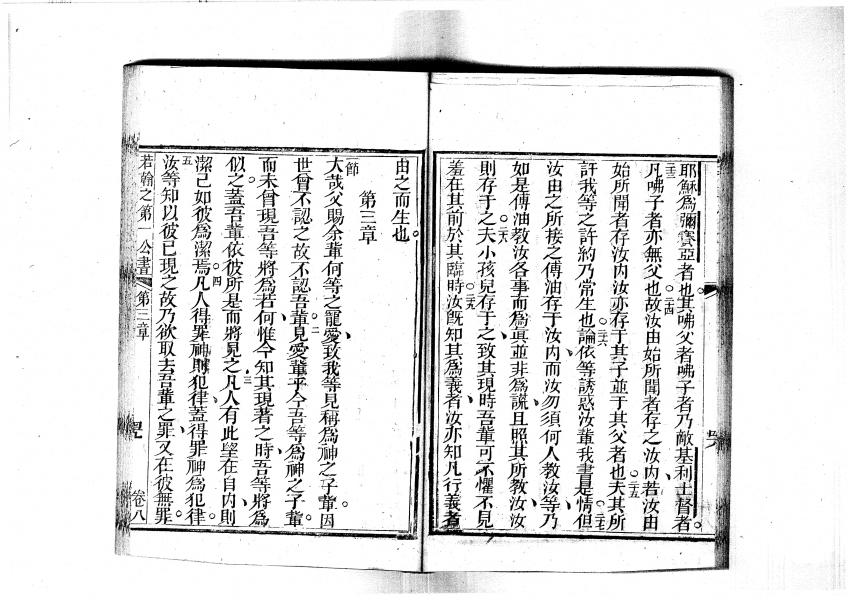 耶穌爲彌賽亞者也其㖠父者㖠子者乃敵基利士督者
二三凡㖠子者亦無父也二四故汝由始所聞者存之汝內若汝由
始所聞者存汝內汝亦存于其子並于其父者也二五夫其所
許我等之許約乃常生也二六論依等誘惑汝輩我書是情二七但
汝由之所接之傅油存于汝內而汝勿須何人教汝等乃
如是傅油教汝各事而爲眞並非爲謊且照其所教汝汝
則存于之二八夫小孩兒存于之致其現時吾輩可不懼不見
羞在其前於其臨時二九汝既知其爲義者汝亦知凡行義者
由之而生也
第三章
一節大哉父賜余輩何等之寵愛致我等見稱爲神之子輩因
世曾不認之故不認吾輩二見愛輩乎今吾等爲神之子輩
而未曾現吾等將爲若何惟今知其現著之時吾等將爲
似之蓋吾輩依彼所是而將見之三凡人有此望在自內則
潔己如彼爲潔焉四凡人得罪神則犯律蓋得罪神爲犯律
五汝等知以彼已現之故乃欲取去吾輩之罪又在彼無罪
若翰之第一公書 第三章 卷八